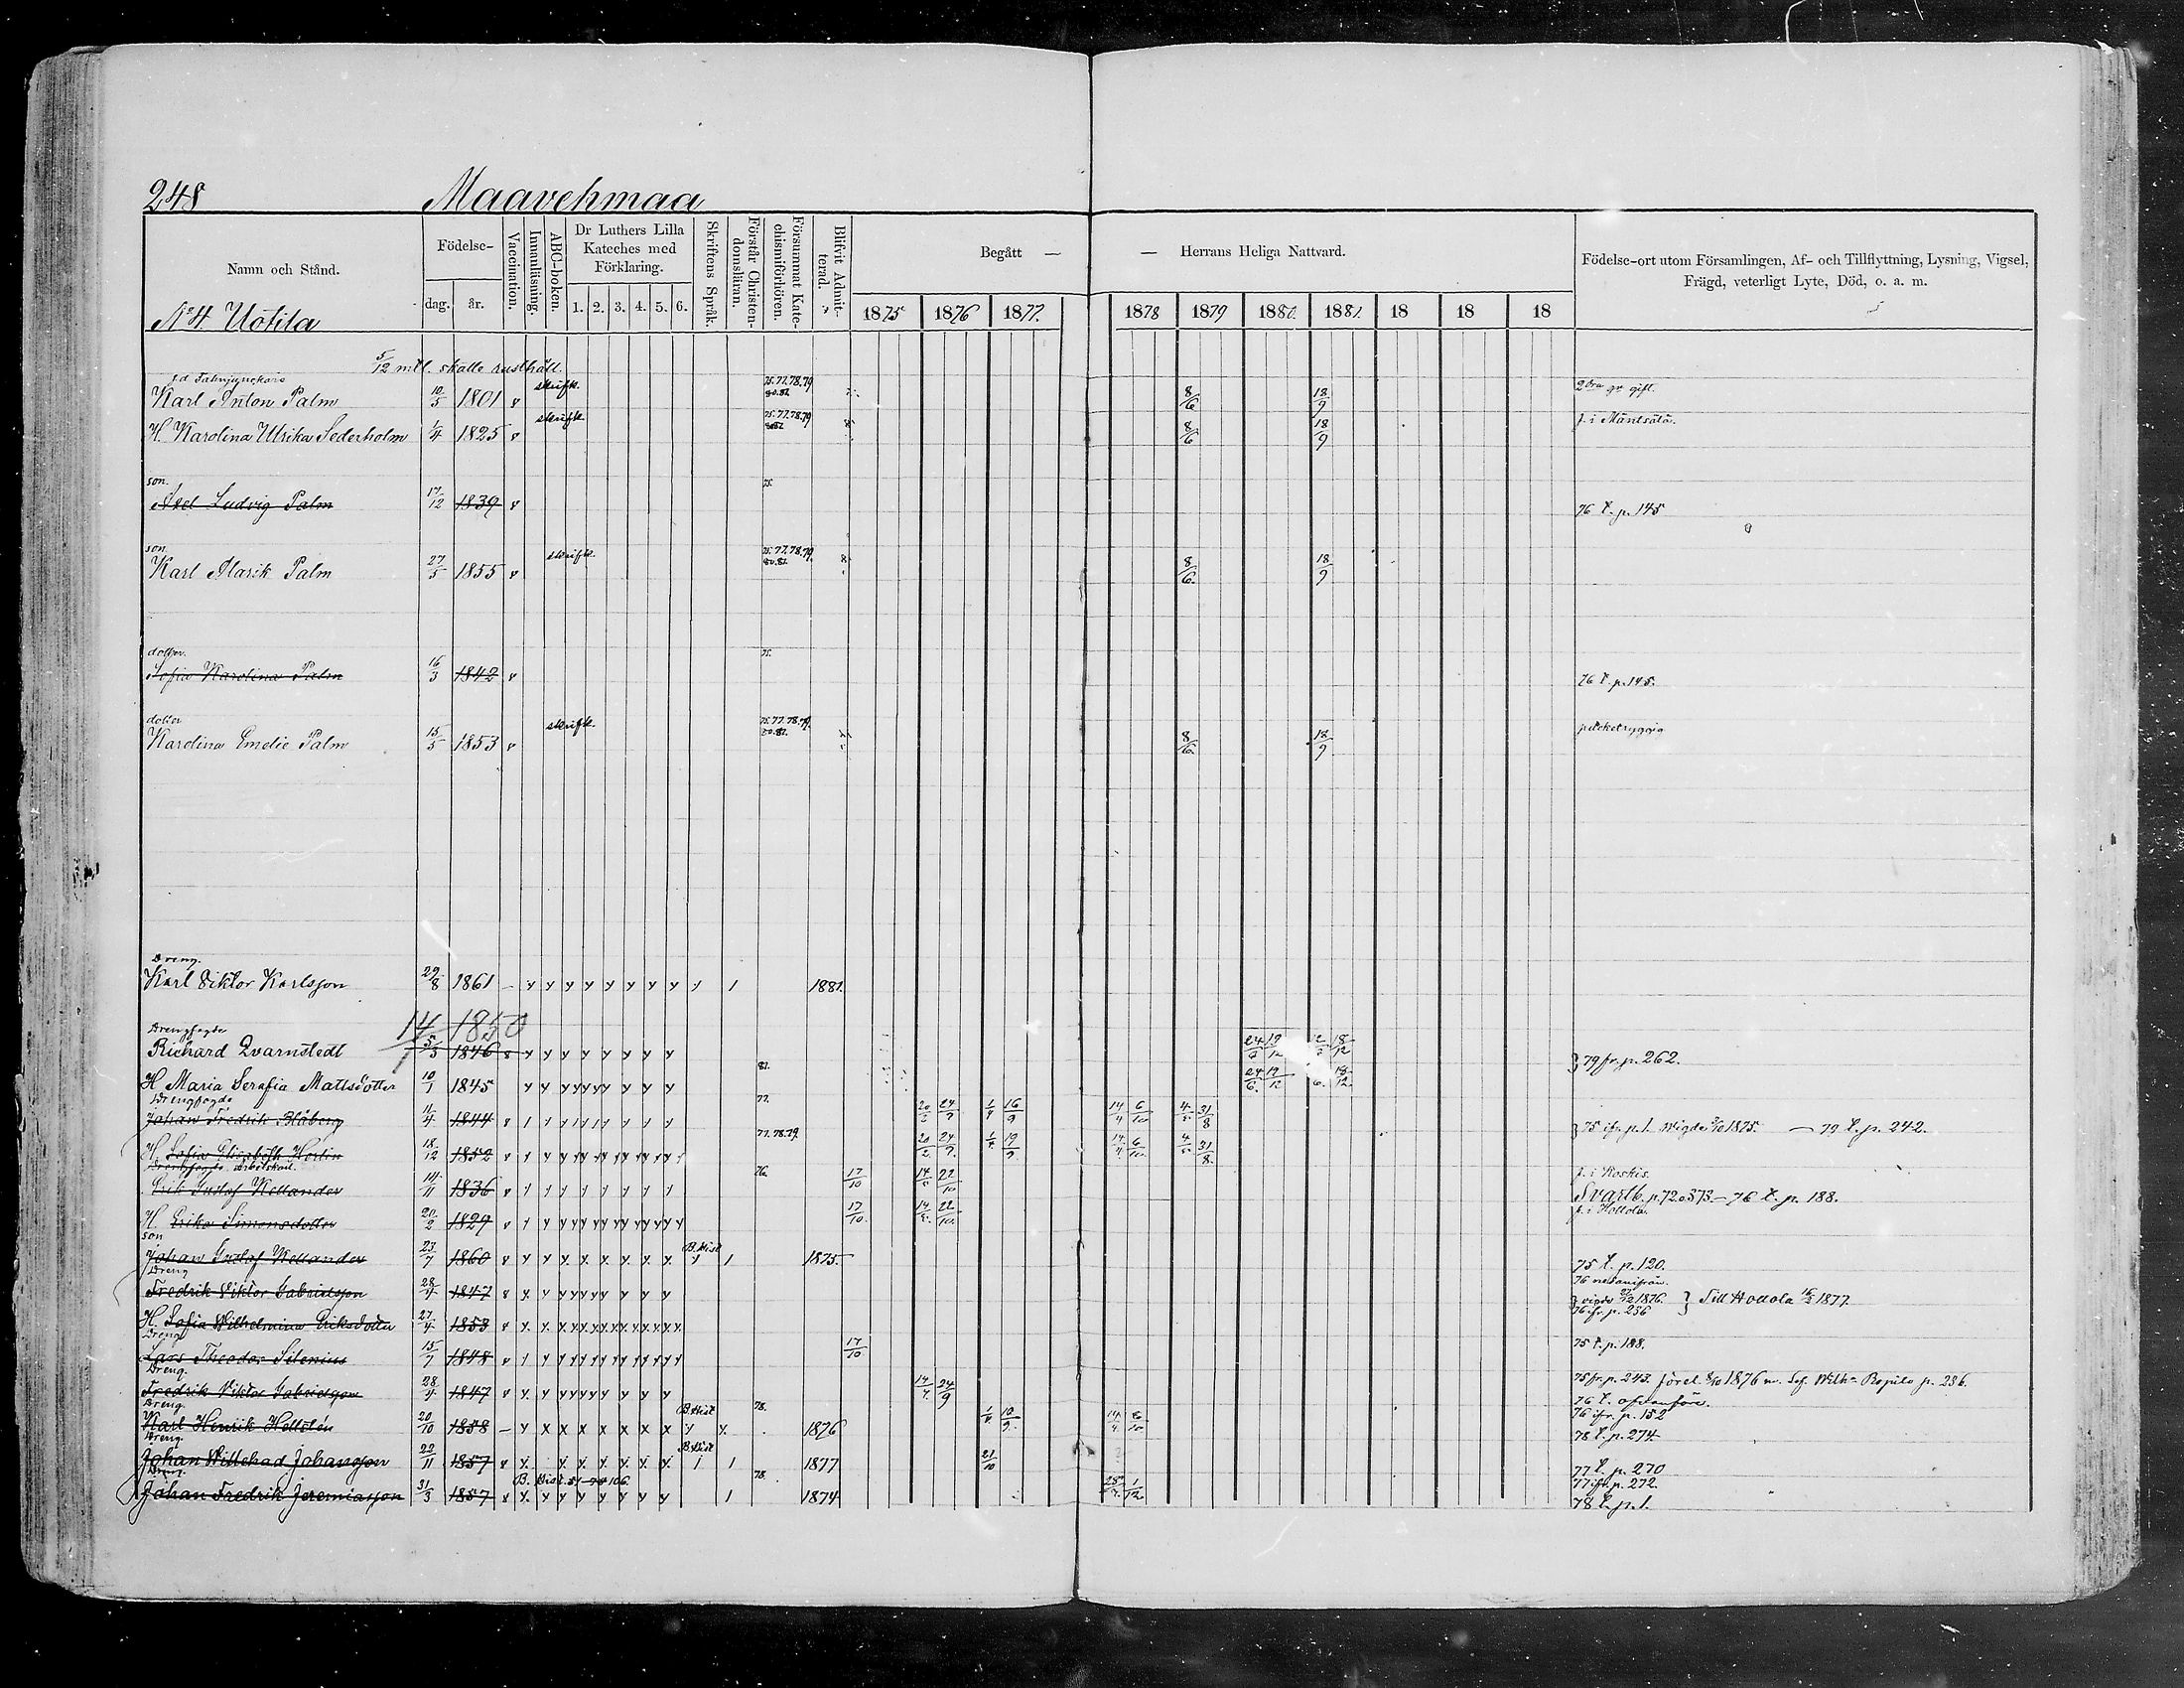 248 Maavehmaa
Namn och Stånd.
Födelse-
dag. år.
Vaccination.
Innanläsning.
ABC-boken.
Dr Luthers Lilla Kateches med Förklaring.
1. 2. 3. 4. 5. 6.
Skriftens Språk.
Förstår Christendomsläran.
Försummat Katechismiförhören.
Blifvit Admitterad.
Begått — — Herrans Heliga Nattvard.
1875 1876 1877. 1878 1879 1880. 1881. 18 18 18
Födelse-ort utom Församlingen, Af- och Tillflyttning, Lysning, Vigsel, Frägd, veterligt Lyte, Död, o. a. m.
No 4 Uotila
5/12 mtl. skatte rusthåll.
Karl Anton Palm 10/5 1801 v skrifk. 75.77.78.79 80.81. 8/6 18/9 2dra gr gift.
H. Karolina Ulrika Sederholm 1/4 1825 v skrifk 75.77.78.79 8/6 18/9 f. i Mäntsälä.
son.
Axel Ludvig Palm 17/12 1839 v 75. 76 t. p. 145
son
Karl Alarik Palm 27/5 1855 v skrifk. 75.77.78.79 80.81. 8/6. 18/9
dotter.
Sofia Karolina Palm 16/3 1842 v 75. 76 t. p. 145.
dotter
Karolina Emelie Palm 15/5 1853 v skrifk. 75.77.78.79. 80.81. 8/6. 18/9
Dreng.
Karl Viktor Karlsson 29/8 1861 1881.
14/1 1850
Drengfogde
Richard Qvarnstedt 5/3 1846 24/6 19/12 18/12 79 fr. p. 262.
H Maria Serafia Mattsdotter 10/1 1845 81. 24/6. 19/12 18/12.
Drengfogde
Johan Fredrik Blåberg 11/4 1844 77. 24/9 16/9 14/4 6/10 31/8 75 ifr. p. 1. vigde 3/10 1875. — 79 t. p. 242.
H. Sofia Elisabeth Hortin 18/12 1852 77.78.79. 20/2 24/9. 19/9 14/4 6/10 31/8.
Drengfogde Arbetskarl.
Erik Gustaf Wellander 14/11 1836 76. 17/10 22/10 f. i Koskis.
Svartb. p. 72 o 373 — 76 t. p. 188.
H. Erika Simonsdotter 20/2 1829 17/10. 22/10. f. i Hollola.
son
Johan Gustaf Wellander 23/7 1860 B. Hist 1875. 75 t. p. 120.
Dreng
Fredrik Viktor Gabrielsson 28/4 1847 76 nedanifrån.
vigde 1876. } Till Hollola 1877.
76 ifr. p. 256
H. Sofia Wilhelmina Eriksdotter 27/4 1853
Dreng
Lars Theodor Silenius 15/7 1848 17/10 75 t. p. 188.
Dreng.
Fredrik Viktor Gabrielsson 28/4 1847 24/9 75 fr. p. 243.
76 t. ofvanföre.
Dreng.
Karl Henrik Hellstén 20/10 1858 B. Hist 78. 1876 10/9. 6/10 76 ifr. p. 152
78 t. p. 274.
Dreng.
Johan Willehad Johansson 22/11 1857 B. Hist 1877 21/10 77 t. p. 270
Dreng.
Johan Fredrik Jeremiasson 31/3 1857 B. Hist. 78. 1874 1/12 77 ifr. p. 272.
78 t. p. 1.